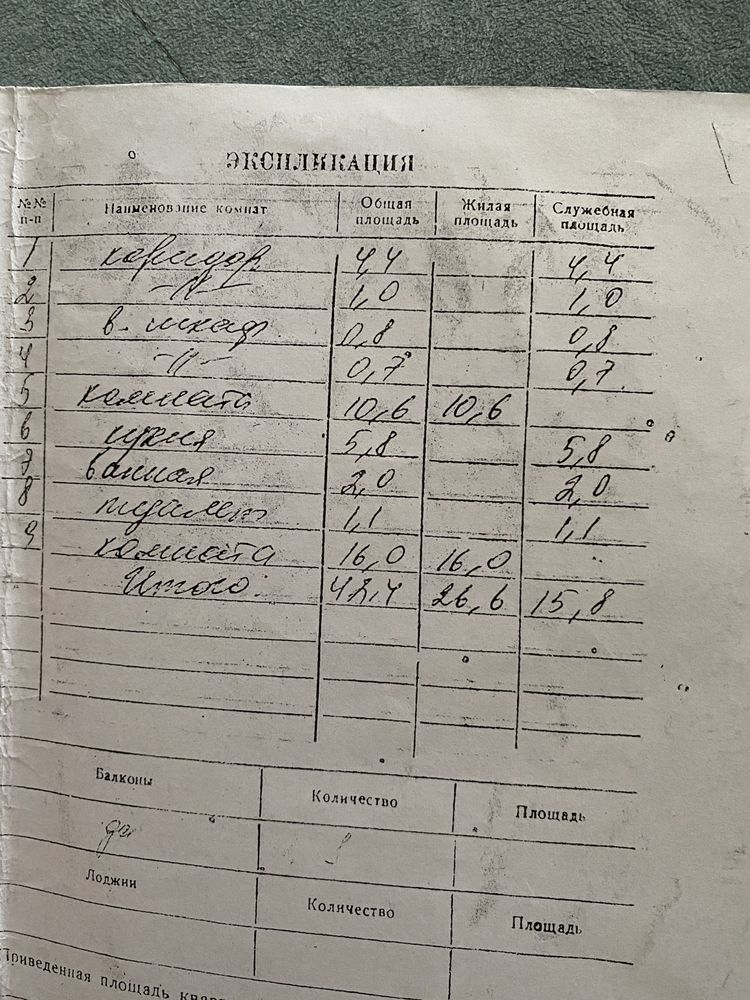 ЭКСПЛИКАЦИЯ
№№ п-п Наименование комнат Общая площадь Жилая площадь Служебная площадь
1 коридор 4,4 4,4
2 -//- 1,0 1,0
3 в. шкаф 0,8 0,8
4 -//- 0,7 0,7
5 комната 10,6 10,6
6 кухня 5,8 5,8
7 ванная 2,0 2,0
8 туалет 1,1 1,1
9 комната 16,0 16,0
Итого: 42,4 26,6 15,8
Балконы Количество Площадь
да
Лоджии Количество Площадь
Приведенная площадь